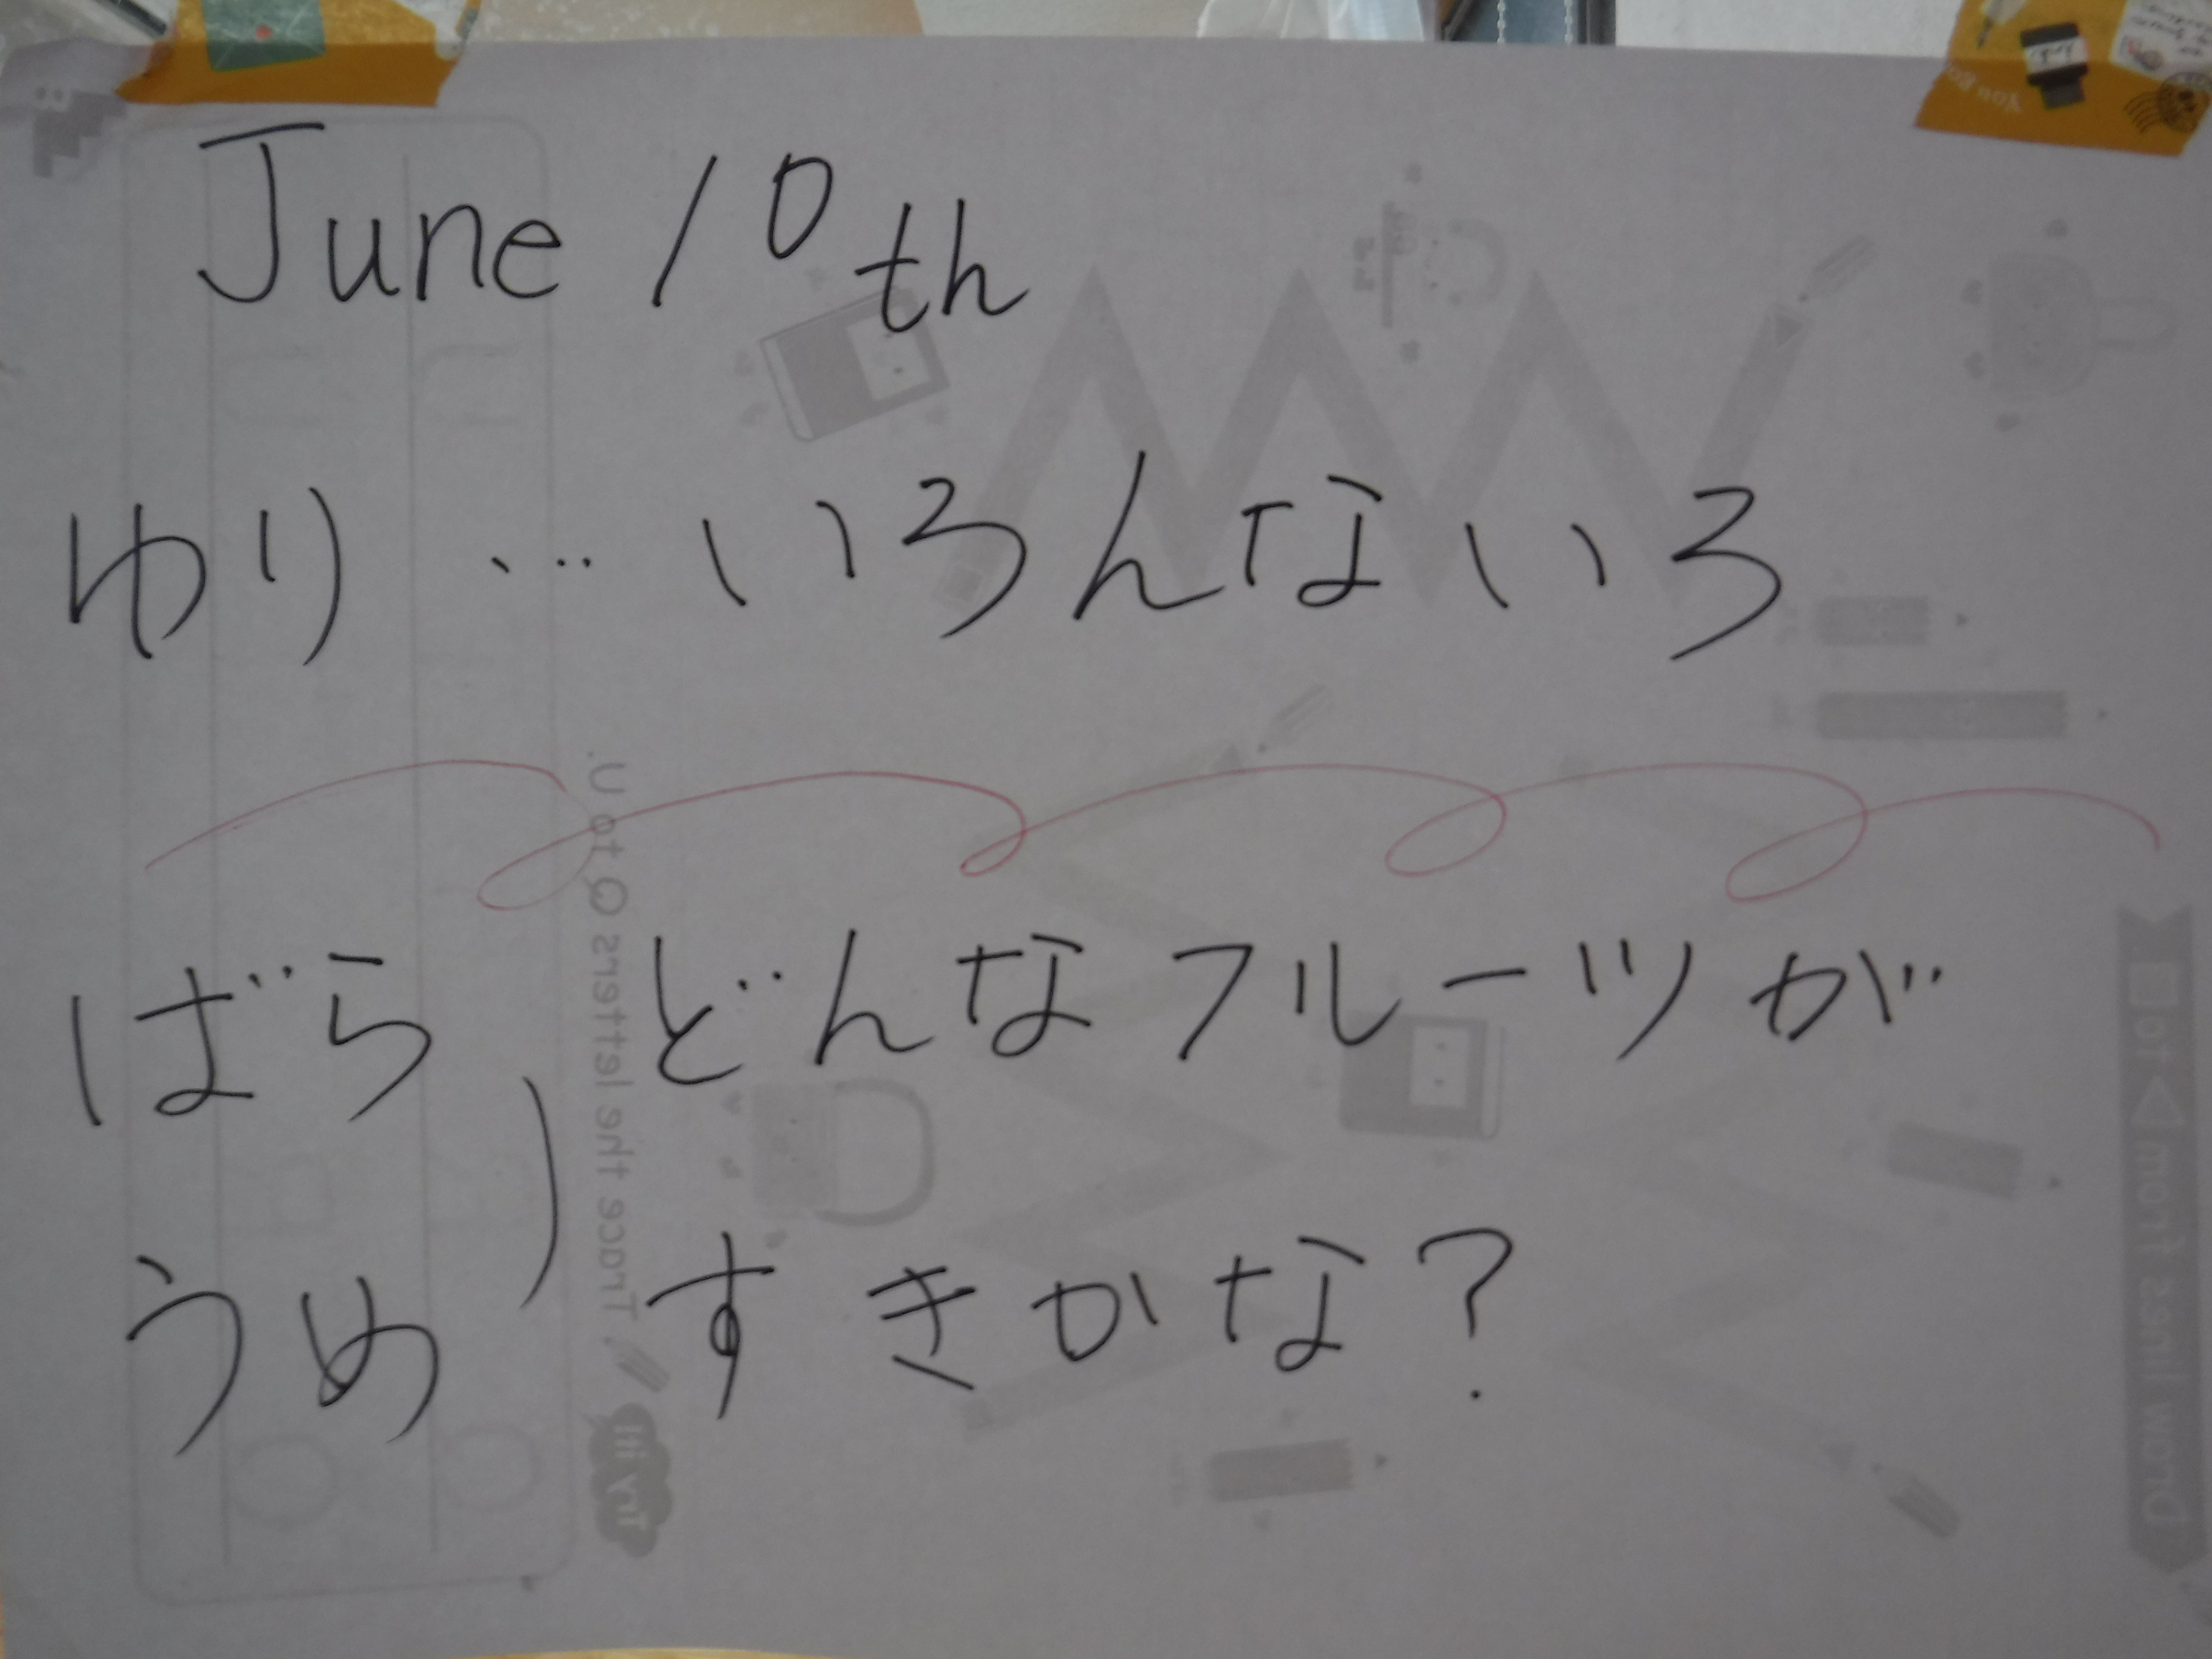 June 10th
ゆり … いろんないろ
ばら どんなフルーツが
うめ すきかな?
Trace the letters Q to U.
Try it!